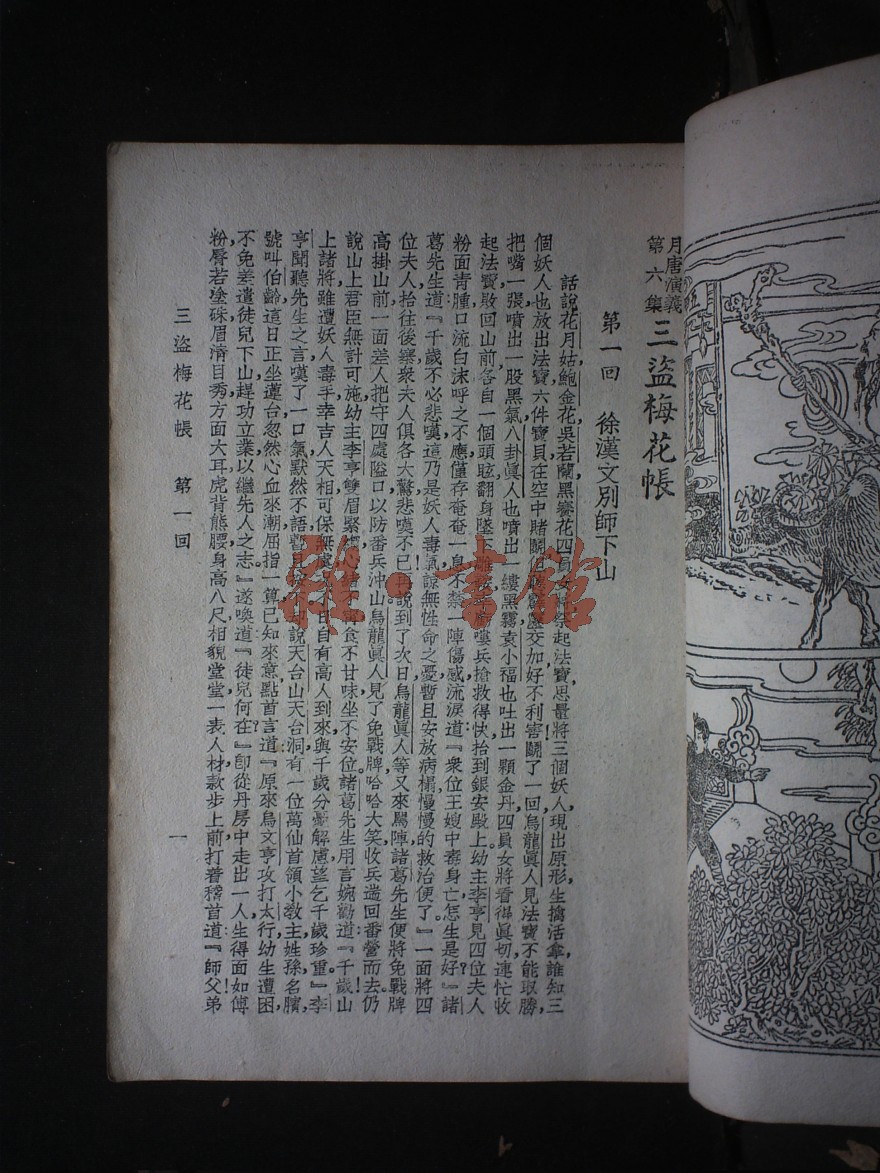 月唐演義
第六集
三盜梅花帳
第一回　徐漢文別師下山
話說花月姑，鮑金花，吳若蘭，黑鸞花，四員女將祭起法寶，思量將三個妖人，現出原形，生擒活拿，誰知三
個妖人也放出法寶六件寶貝在空中賭鬭
交加，好不利害！鬭了一回，烏龍眞人見法寶不能取勝，
把嘴一張，噴出一股黑氣，八卦眞人也噴出一縷黑霧，袁小福也吐出一顆金丹，四員女將看得眞切，連忙收
起法寶，敗回山前，各自一個頭眩，翻身墜
嘍兵搶救得快，抬到銀安殿上，幼主李亨見四位夫人
粉面青腫，口流白沫，呼之不應，僅存奄奄一息，不禁一陣傷感，流淚道：『衆位王嫂中毒身亡，怎生是好？』諸
葛先生道：『千歲不必悲嘆，這乃是妖人毒氣，諒無性命之憂，暫且安放病榻，慢慢的救治便了。』一面將四
位夫人抬往後寨，衆夫人俱各大驚，悲嘆不已！再說到了次日，烏龍眞人等又來罵陣，諸葛先生便將免戰牌
高掛山前，一面差人把守四處隘口，以防番兵沖山，烏龍眞人見了免戰牌，哈哈大笑，收兵遄回番營而去。仍
說山上君臣無計可施，幼主李亨雙眉緊
食不甘味，坐不安位，諸葛先生用言婉勸道：『千歲！山
上諸將，雖遭妖人毒手，幸吉人天相，可保無
日自有高人到來，與千歲分憂解慮，望乞千歲珍重。』李
亨聞聽先生之言，嘆了一口氣，默然不語，暫且
說天台山天台洞，有一位萬仙首領小教主，姓孫名臏，
號叫伯齡，這日正坐蓮台，忽然心血來潮，屈指一算，已知來意，點首言道：『原來烏文亨攻打太行，幼生遭困，
不免差遣徒兒下山，趕功立業，以繼先人之志。』遂喚道：『徒兒何在？』卽從丹房中走出一人，生得面如傅
粉，脣若塗硃，眉清目秀，方面大耳，虎背熊腰，身高八尺，相貌堂堂，一表人材，款步上前，打着稽首道：『師父！弟
三盜梅花帳　第一回
一
雜·書館